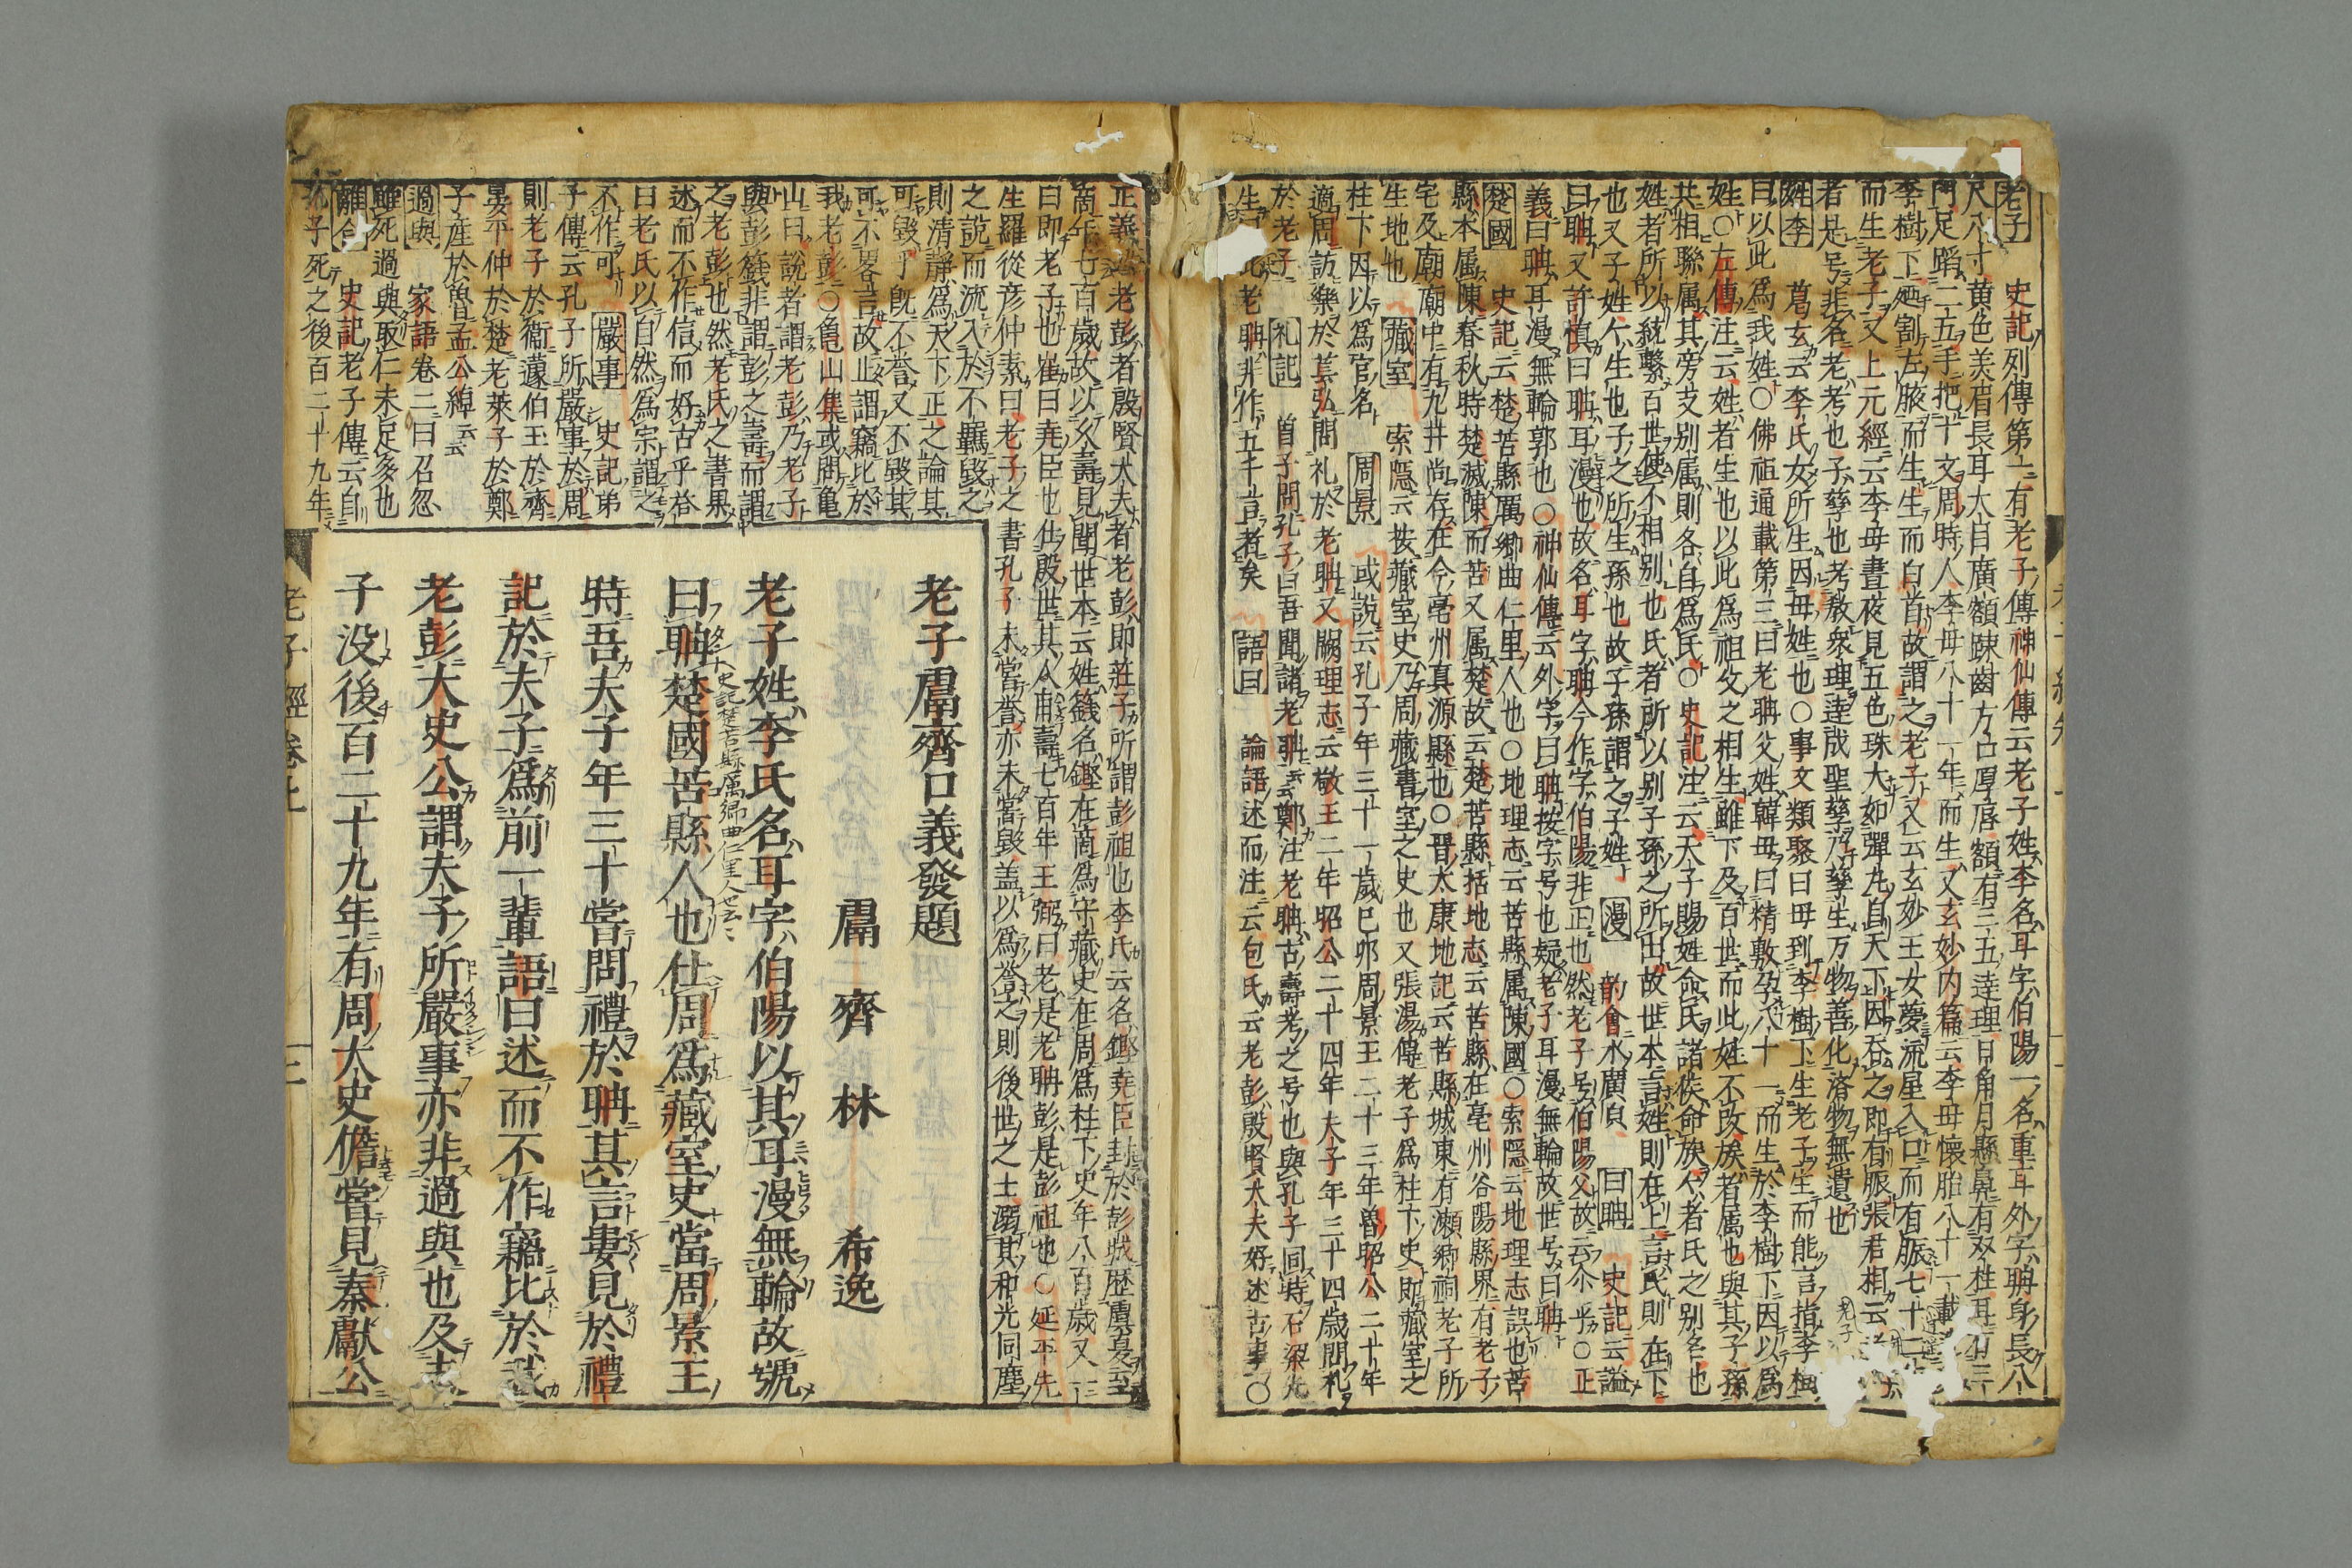 老子 史記列傳第二有老子傳神仙傳云老子姓李名耳字伯陽一名重耳外字聃身長八
尺八寸黄色美眉長耳大目廣額踈齒方口厚唇額有三五達理日角月縣鼻有双柱耳有三
門足蹈二五手把十文周時人李母八十一年而生又玄妙内篇云李母懷胎八十一載
李樹下廼割左腋而生生而白首故謂之老子又云玄妙王女夢流星入口而有娠七十二
而生老子又上元經云李母晝夜見五色珠大如彈丸自天下因吞之即有娠張君相云老子
者是号非名老考也子孳也考敎衆理達成聖孳乃孳生万物善化濟物無遺也
姓李 葛玄云李氏女所生因母姓也○事文類聚曰母到李樹下生老子生而能言指李樹
曰以此為我姓○佛祖通載第三曰老聃父姓韓母曰精敷孕八十一而生於李樹下因以爲
姓○左傳注云姓者生也以此爲祖攵之相生雖下及百世而此姓不改族者属也與其子孫
共相聯属其旁支別属則各自爲氏○史記注云天子賜姓命氏諸侯命族々者氏之別名也
姓者所以統繫百世使不相別也氏者所以別子孫之所出故世本言姓則在上言氏則在下
也又子姓々生也子之所生孫也故子孫謂之子姓 漫 韵會水廣皃 曰聃 史記云謚
曰聃又許慎曰聃耳漫也故名耳字聃今作字伯陽非正也然老子号伯陽父故云尒乎○正
義曰聃耳漫無輪郭也○神仙傳云外字曰聃按字号也疑老子耳漫無輪故世号曰聃
楚國 史記云楚苦縣厲郷曲仁里人也○地理志云苦縣属陳國○索隱云地理志誤也苦
縣本属陳春秋時楚滅陳而苦又属楚故云楚苦縣括地志云苦縣在亳州谷陽縣界有老子
宅及廟廟中有九井尚存在今亳州真源縣也○晋太康地記云苦縣城東有瀬郷祠老子所
生地也 藏室 索隱云按藏室史乃周藏書室之史也又張湯傳老子爲柱下史即藏室之
柱下因以爲官名 周景 或說云孔子年三十一歳巳卯周景王二十三年魯昭公二十年
適周訪樂於萇弘問礼於老聃又闕理志云敬王二年昭公二十四年夫子年三十四歳問礼
於老子 礼記 曽子問孔子曰吾聞諸老聃云鄭注老聃古壽考之号也與孔子同時
生 老聃非作五千言者矣 語曰 論語述而注云包氏云老彭殷賢大夫好述古事○
正義 老彭者殷賢大夫者老彭即莊子所謂彭祖也李氏云名鏗堯臣封於彭城歴虞夏至
商年七百歳故以久壽見聞世本云姓籛名鏗在商爲守藏史在周爲柱下史年八百歳又一
曰即老子也崔曰堯臣也仕殷世其人甫壽七百年王弼曰老是老聃彭是彭祖也○延平先
生羅從彦仲素曰老子之書孔子未嘗誉亦未嘗毀盖以爲誉之則後世之士溺其和光同塵
之說而流入於不羈毀之
則清靜爲天下正之論其
可毀乎旣不誉又不毀其
可不畧言故止謂竊比於
我老彭○龜山集或問龜
山曰說者謂老彭乃老子
與彭籛非謂彭之壽而謂
之老彭也然老氏之書果
述而不作信而好古乎答
曰老氏以自然爲宗謂之
不作可 嚴事 史記弟
子傳云孔子所嚴事於周
則老子於衞蘧伯玉於齊
晏平仲於楚老萊子於鄭
子産於魯孟公綽云云
過與 家語卷二曰召忽
雖死過與取仁未足多也
離合 史記老子傳云自
孔子死之後百二十九年
老子鬳齋口義發題
鬳齋林希逸
老子姓李氏名耳字伯陽以其耳漫無輪故號
曰聃楚國苦縣人也仕周爲藏室史當周景王
史記楚苦縣厲郷曲仁里人也云々
時吾夫子年三十嘗問禮於聃其言婁見於禮
記於夫子爲前一輩語曰述而不作竊比於我
老彭大史公謂夫子所嚴事亦非過與也及老
子没後百二十九年有周太史儋嘗見秦獻公
老子經卷上